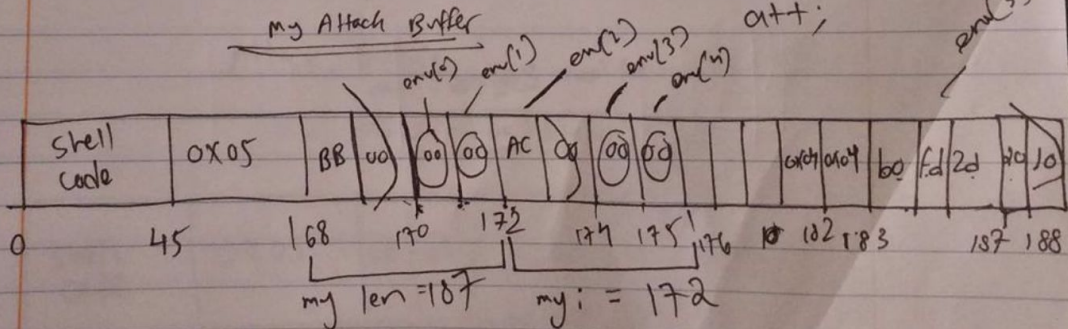 My Attack Buffer
a++;
env(0) env(1) env(2) env(3) env(4)
Shell code 0x05 BB 00 00 00 AC 00 00 00 0x04 0x04 b0 fd 2d
0 45 168 170 172 174 175 176 182 183 187 188
my len = 187 my i = 172